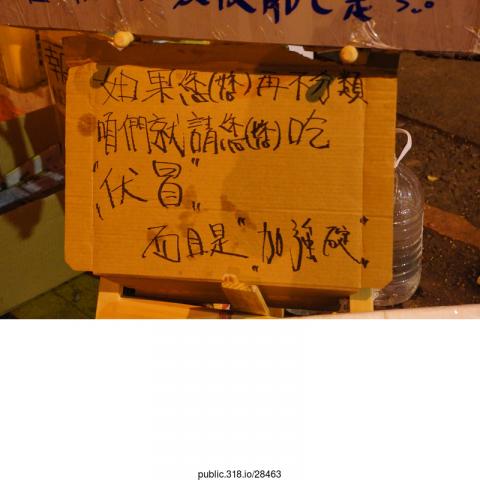 如果您(您)再不分類
咱們就請您(您)吃
"伏冒"
而且是"加強碇"
public.318.io/28463